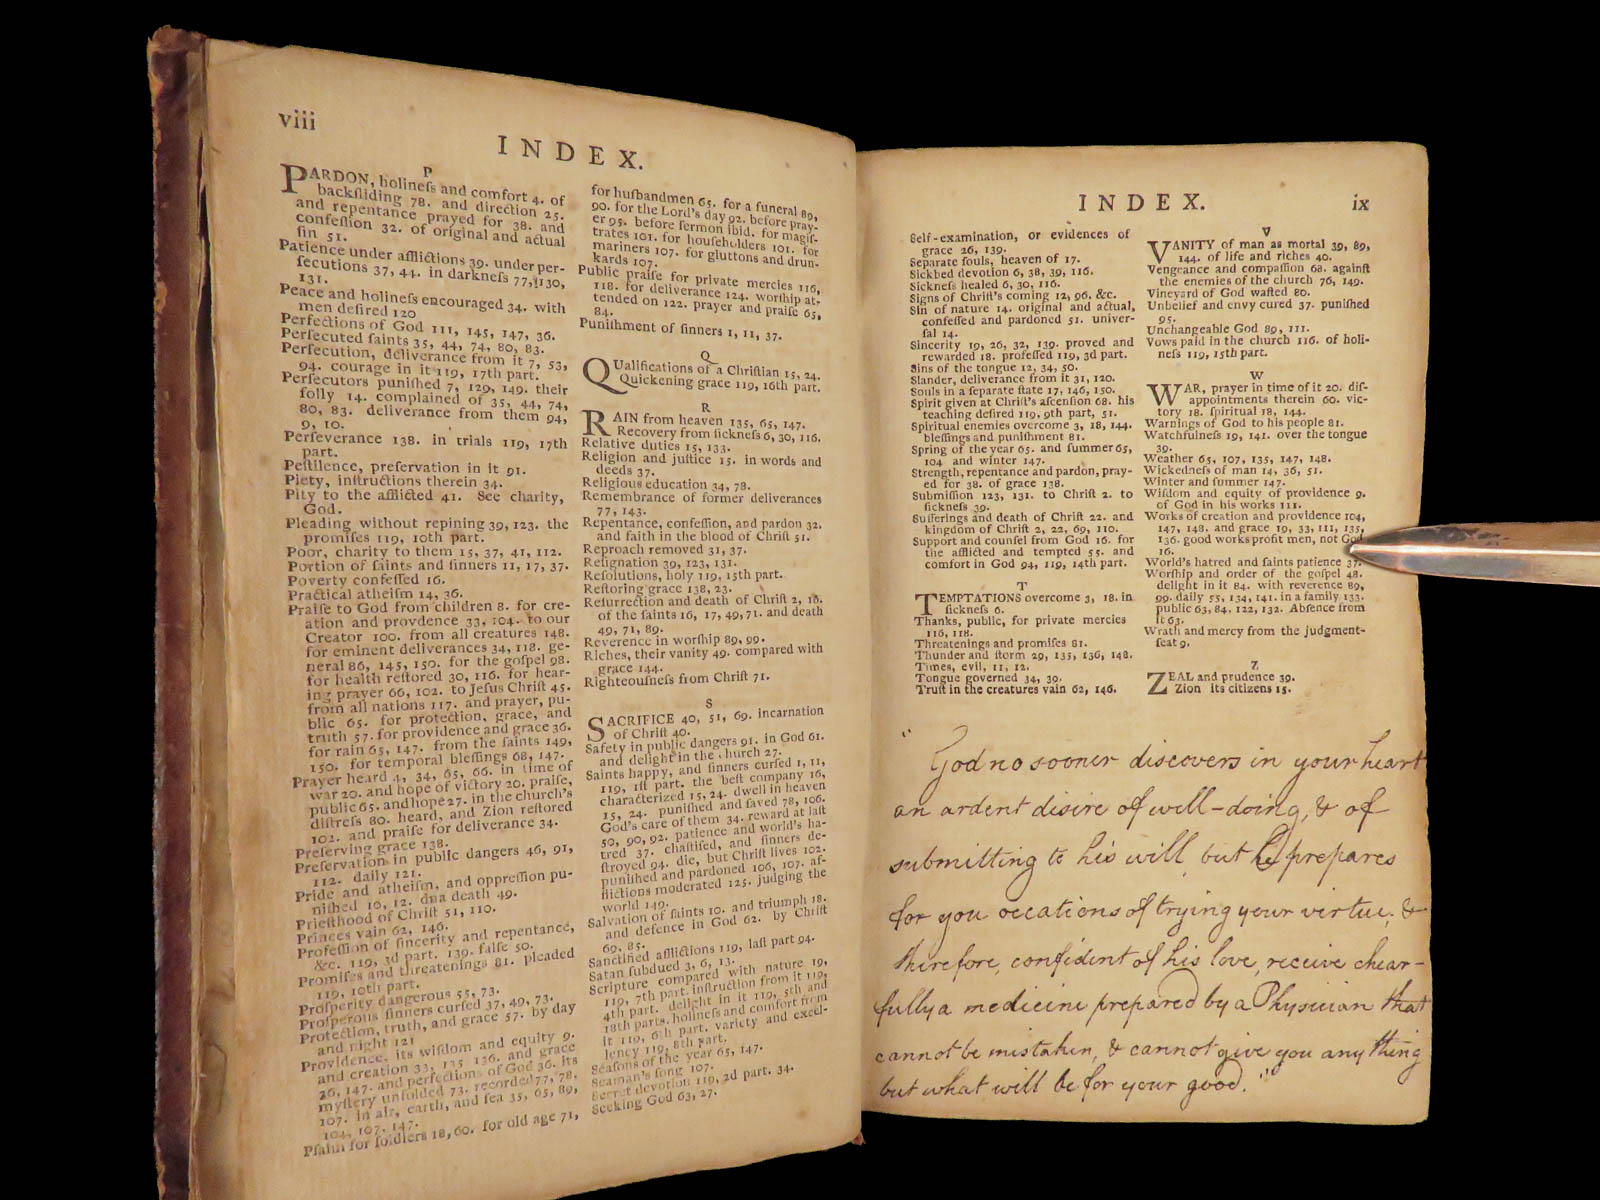 viii
INDEX.
P
PARDON, holineſs and comfort 4. of
backſliding 78. and direction 25.
and repentance prayed for 38. and
confeſſion 32. of original and actual
ſin 51.
Patience under afflictions 39. under per-
ſecutions 37, 44. in darkneſs 77, 130,
131.
Peace and holineſs encouraged 34. with
men deſired 120
Perfections of God 111, 145, 147, 36.
Perſecuted ſaints 35, 44, 74, 80, 83.
Perſecution, deliverance from it 7, 53,
94. courage in it 119, 17th part.
Perſecutors puniſhed 7, 129, 149. their
folly 14. complained of 35, 44, 74,
80, 83. deliverance from them 94,
9, 10.
Perſeverance 138. in trials 119, 17th
part.
Peſtilence, preſervation in it 91.
Piety, inſtructions therein 34.
Pity to the afflicted 41. See charity,
God.
Pleading without repining 39, 123. the
promiſes 119, 10th part.
Poor, charity to them 15, 37, 41, 112.
Portion of ſaints and ſinners 11, 17, 37.
Poverty confeſſed 16.
Practical atheiſm 14, 36.
Praiſe to God from children 8. for cre-
ation and provdence 33, 104. to our
Creator 100. from all creatures 148.
for eminent deliverances 34, 118. ge-
neral 86, 145, 150. for the goſpel 98.
for health reſtored 30, 116. for hear-
ing prayer 66, 102. to Jeſus Chriſt 45.
from all nations 117. and prayer, pu-
blic 65. for protection, grace, and
truth 57. for providence and grace 36.
for rain 65, 147. from the ſaints 149,
150. for temporal bleſſings 68, 147.
Prayer heard 4, 34, 65, 66. in time of
war 20. and hope of victory 20. praiſe,
public 65. and hope 27. in the church's
diſtreſs 80. heard, and Zion reſtored
102. and praiſe for deliverance 34.
Preſerving grace 138.
Preſervation in public dangers 46, 91,
112. daily 121.
Pride and atheiſm, and oppreſſion pu-
niſhed 10, 12. dna death 49.
Prieſthood of Chriſt 51, 110.
Princes vain 62, 146.
Profeſſion of ſincerity and repentance,
&c. 119, 3d part. 139. falſe 50.
Promiſes and threatenings 81. pleaded
119, 10th part.
Proſperity dangerous 55, 73.
Proſperous ſinners curſed 37, 49, 73.
Protection, truth, and grace 57. by day
and night 121
Providence, its wiſdom and equity 9.
and creation 33, 135 136. and grace
36, 147. and perfections of God 36. its
myſtery unfolded 73. recorded 77, 78,
107. in air, earth, and ſea 35, 65, 89,
104, 107. 147.
Pſalm for ſoldiers 18, 60. for old age 71,
for huſbandmen 65. for a funeral 89,
90. for the Lord's day 92. before pray-
er 95. before ſermon ibid. for magiſ-
trates 101. for houſeholders 101. for
mariners 107. for gluttons and drun-
kards 107.
Public praiſe for private mercies 116,
118. for deliverance 124. worſhip at-
tended on 122. prayer and praiſe 65,
84.
Puniſhment of ſinners 1, 11, 37.
Q
QUalifications of a Chriſtian 15, 24.
Quickening grace 119, 16th part.
R
RAIN from heaven 135, 65, 147.
Recovery from ſickneſs 6, 30, 116.
Relative duties 15, 133.
Religion and juſtice 15. in words and
deeds 37.
Religious education 34, 78.
Remembrance of former deliverances
77, 143.
Repentance, confeſſion, and pardon 32.
and faith in the blood of Chriſt 51.
Reproach removed 31, 37.
Reſignation 39, 123, 131.
Reſolutions, holy 119, 15th part.
Reſtoring grace 138, 23.
Reſurrection and death of Chriſt 2, 16.
of the ſaints 16, 17, 49, 71. and death
49, 71, 89.
Reverence in worſhip 89, 99.
Riches, their vanity 49. compared with
grace 144.
Righteouſneſs from Chriſt 71.
S
SACRIFICE 40, 51, 69. incarnation
of Chriſt 40.
Safety in public dangers 91. in God 61.
and delight in the church 27.
Saints happy, and ſinners curſed 1, 11,
119, 1ſt part. the beſt company 16,
characterized 15, 24. dwell in heaven
15, 24. puniſhed and ſaved 78, 106.
God's care of them 34. reward at laſt
50, 90, 92. patience and world's ha-
tred 37. chaſtiſed, and ſinners de-
ſtroyed 94. die, but Chriſt lives 102.
puniſhed and pardoned 106, 107. af-
flictions moderated 125. judging the
world 149.
Salvation of ſaints 10. and triumph 18.
and defence in God 62. by Chriſt
69, 85.
Sanctified afflictions 119, laſt part 94.
Satan ſubdued 3, 6, 13.
Scripture compared with nature 19,
119, 7th part. inſtruction from it 119,
4th part. delight in it 119, 5th and
18th parts. holineſs and comfort from
it 119, 6th part. variety and excel-
lency 119, 8th part.
Seaſons of the year 65, 147.
Seaman's ſong 107.
Secret devotion 119, 2d part. 34.
Seeking God 63, 27.
INDEX.
ix
Self-examination, or evidences of
grace 26, 139.
Separate ſouls, heaven of 17.
Sickbed devotion 6, 38, 39, 116.
Sickneſs healed 6, 30, 116.
Signs of Chriſt's coming 12, 96. &c.
Sin of nature 14. original and actual,
confeſſed and pardoned 51. univer-
ſal 14.
Sincerity 19, 26, 32, 139. proved and
rewarded 18. profeſſed 119, 3d part.
Sins of the tongue 12, 34, 50.
Slander, deliverance from it 31, 120.
Souls in a ſeparate ſtate 17, 146, 150.
Spirit given at Chriſt's aſcenſion 68. his
teaching deſired 119, 9th part, 51.
Spiritual enemies overcome 3, 18, 144.
bleſſings and puniſhment 81.
Spring of the year 65. and ſummer 65,
104 and winter 147.
Strength, repentance and pardon, pray-
ed for 38. of grace 138.
Submiſſion 123, 131. to Chriſt 2. to
ſickneſs 39.
Sufferings and death of Chriſt 22. and
kingdom of Chriſt 2, 22, 69, 110.
Support and counſel from God 16. for
the afflicted and tempted 55. and
comfort in God 94, 119, 14th part.
T
TEMPTATIONS overcome 3, 18. in
ſickneſs 6.
Thanks, public, for private mercies
116, 118.
Threatenings and promiſes 81.
Thunder and ſtorm 29, 135, 136, 148.
Times, evil, 11, 12.
Tongue governed 34, 39.
Truſt in the creatures vain 62, 146.
V
VANITY of man as mortal 39, 89,
144. of life and riches 40.
Vengeance and compaſſion 68. againſt
the enemies of the church 76, 149.
Vineyard of God waſted 80.
Unbelief and envy cured 37. puniſhed
95.
Unchangeable God 89, 111.
Vows paid in the church 116. of holi-
neſs 119, 15th part.
W
WAR, prayer in time of it 20. diſ-
appointments therein 60. vic-
tory 18. ſpiritual 18, 144.
Warnings of God to his people 81.
Watchfulneſs 19, 141. over the tongue
39.
Weather 65, 107, 135, 147, 148.
Wickedneſs of man 14, 36, 51.
Winter and ſummer 147.
Wiſdom and equity of providence 9.
of God in his works 111.
Works of creation and providence 104,
147, 148. and grace 19, 33, 111, 135,
136. good works profit men, not God
16.
World's hatred and ſaints patience 37.
Worſhip and order of the goſpel 48.
delight in it 84. with reverence 89,
99. daily 55, 134, 141. in a family 133.
public 63, 84, 122, 132. Abſence from
it 63.
Wrath and mercy from the judgment-
ſeat 9.
Z
ZEAL and prudence 39.
Zion its citizens 15.
"God no sooner discovers in your heart
an ardent disire of well-doing, & of
submitting to his will, but he prepares
for you occations of trying your virtue, &
therefore, confident of his love, receive chear-
fully a medicine prepared by a Physician that
cannot be mistaken, & cannot give you any thing
but what will be for your good."